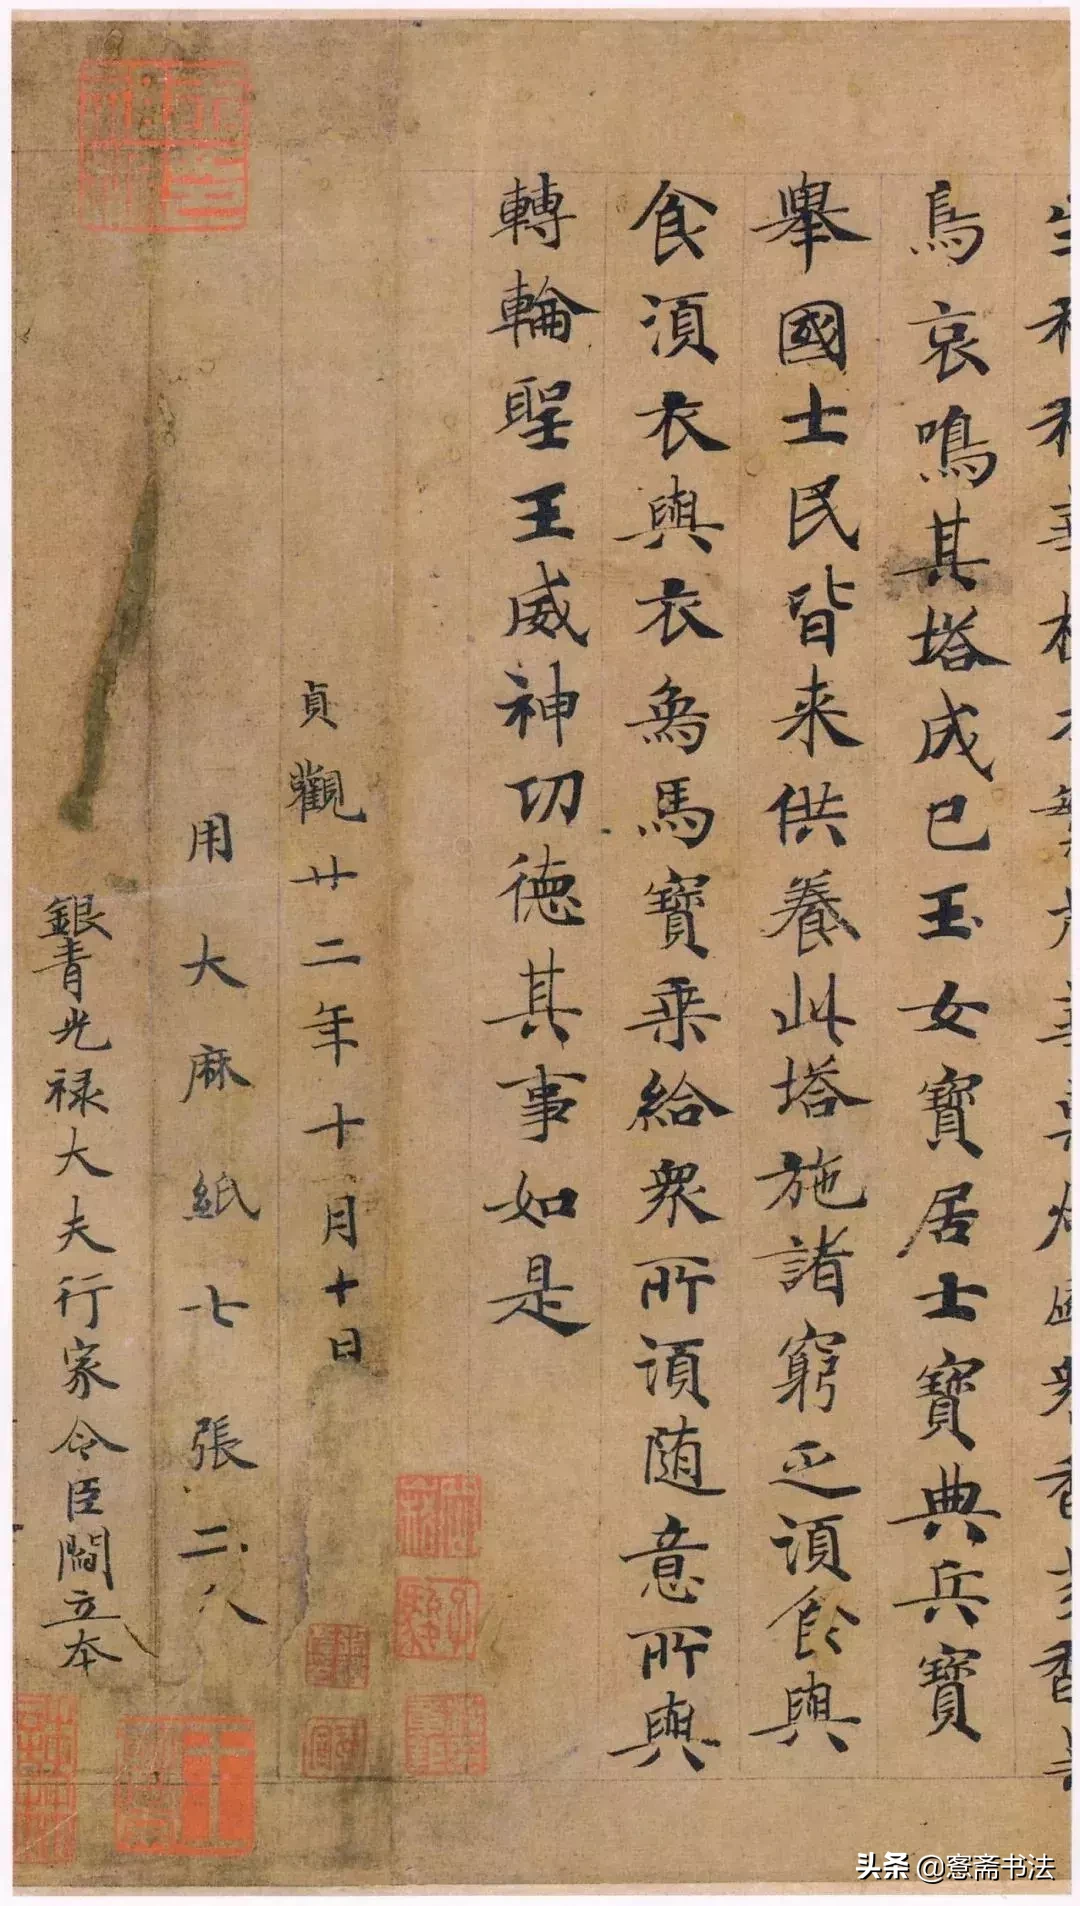 鳥哀鳴其塔成已玉女寶居士寶典兵寶
舉國士民皆来供養此塔施諸窮乏須食與
食須衣與衣象馬寶乘給眾所須随意所與
轉輪聖王威神功德其事如是
貞觀廿二年十二月十日
用大麻紙七張二分
銀青光禄大夫行家令臣閻立本
头条 @窓斋书法